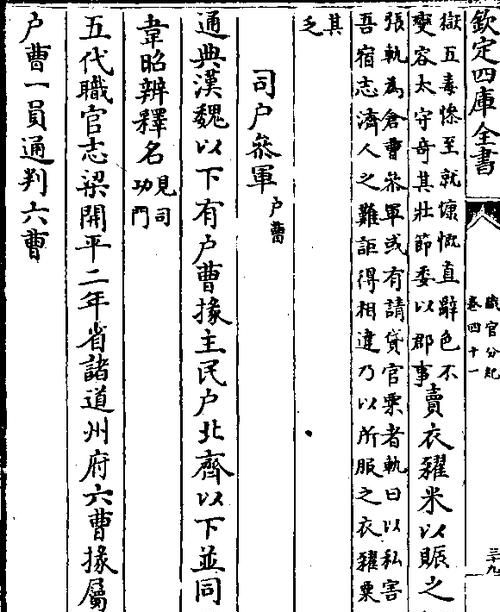 欽定四庫全書
職官分紀
卷四十一
三十九
嶽五毒慘至就慷慨直辭色不
變容太守奇其壯節委以郡事
賣衣糴米以賑之
張軌為倉曹叅軍或有請貸官粟者軌曰以私害
吾宿志濟人之難詎得相違乃以所服之衣糴粟
其
乏
司户叅軍户曹
通典漢魏以下有户曹掾主民户北齊以下並同
韋昭辨釋名見司
功門
五代職官志梁開平二年省諸道州府六曹掾屬
户曹一員通判六曹